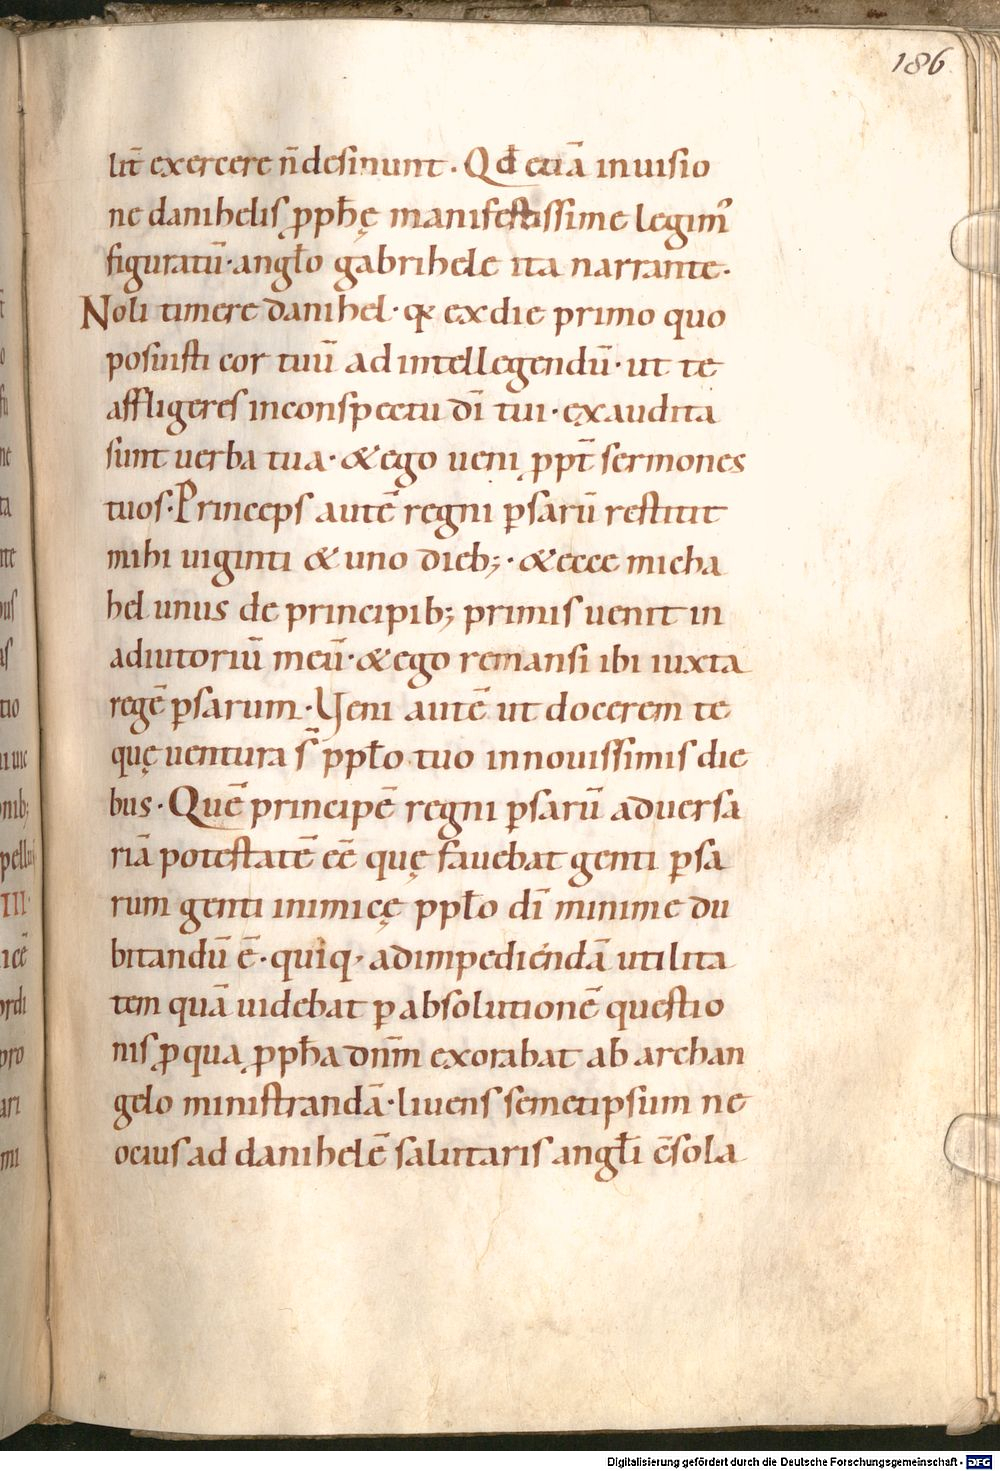 186
lit̄ exercere n̄ desinunt · Qđ etiā in uisio
ne danihelis ꝓpħę manifestissime legim᷒
figuratū · angƚo gabrihele ita narrante ·
Noli timere danihel · qꝛ ex die primo quo
posuisti cor tuū ad intellegendū · ut te
affligeres in conspectu dī tui · exaudita
sunt uerba tua · & ego ueni ꝓpt̄ sermones
tuos · Princeps autē regni ꝑsarū restitit
mihi uiginti & uno dieb; · & ecce micha
hel unus de principib; primis uenit in
adiutoriū meū · & ego remansi ibi iuxta
regē ꝑsarum · Ueni autē ut docerem te
quę uentura s̄ ppƚo tuo in nouissimis die
bus · Quē principē regni ꝑsarū aduersa
riā potestatē eē quę fauebat genti ꝑsa
rum genti inimicę ppƚo dī minime du
bitandū ē · quiq· ad impediendā utilita
tem quā uidebat ꝑ absolutionē questio
nis ꝓ qua ꝓpħa dnm̄ exorabat ab archan
gelo ministrandā · liuens semetipsum ne
ocius ad danihelē salutaris angƚi c̄sola
Digitalisierung gefördert durch die Deutsche Forschungsgemeinschaft - DFG